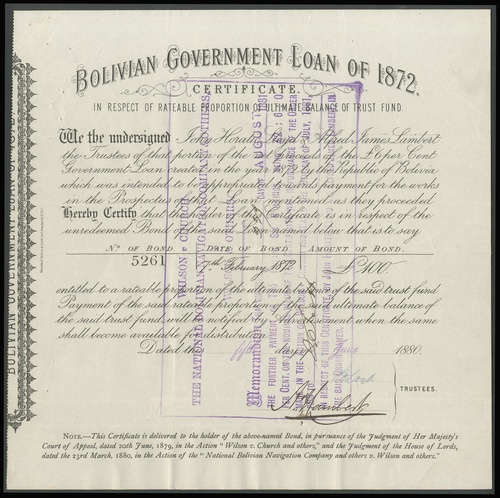 BOLIVIAN GOVERNMENT LOAN OF 1872.
CERTIFICATE.
IN RESPECT OF RATEABLE PROPORTION OF ULTIMATE BALANCE OF TRUST FUND.
We the undersigned John Horatio Lloyd & Alfred James Lambert
the Trustees of that portion of the proceeds of the Per Cent
Government Loan created in the year 1872 by the Republic of Bolivia
which was intended to be appropriated towards payment for the works
in the Prospectus of the Loan mentioned as they proceeded
Hereby Certify that the holder of this Certificate is in respect of the
unredeemed Bond of the said Loan named below that is to say
No. OF BOND. DATE OF BOND. AMOUNT OF BOND.
5261 7th February 1872 £100
entitled to a rateable proportion of the ultimate balance of the said trust fund
Payment of the said rateable proportion of the said ultimate balance of
the said trust fund will be notified by Advertisement when the same
shall become available for distribution
Dated the day of June 1880.
TRUSTEES.
NOTE.—This Certificate is delivered to the holder of the above-named Bond, in pursuance of the Judgment of Her Majesty's
Court of Appeal, dated 20th June, 1879, in the Action "Wilson v. Church and others," and the Judgment of the House of Lords,
dated the 23rd March, 1880, in the Action of the "National Bolivian Navigation Company and others v. Wilson and others."
BOLIVIAN GOVERNMENT LOAN OF
WILSON v CHURCH
THE NATIONAL BOLIVIAN NAVIGATION COMPANY & OTHERS
v WILSON & OTHERS.
Memorandum AUGUST 1881
THE FURTHER PAYMENT